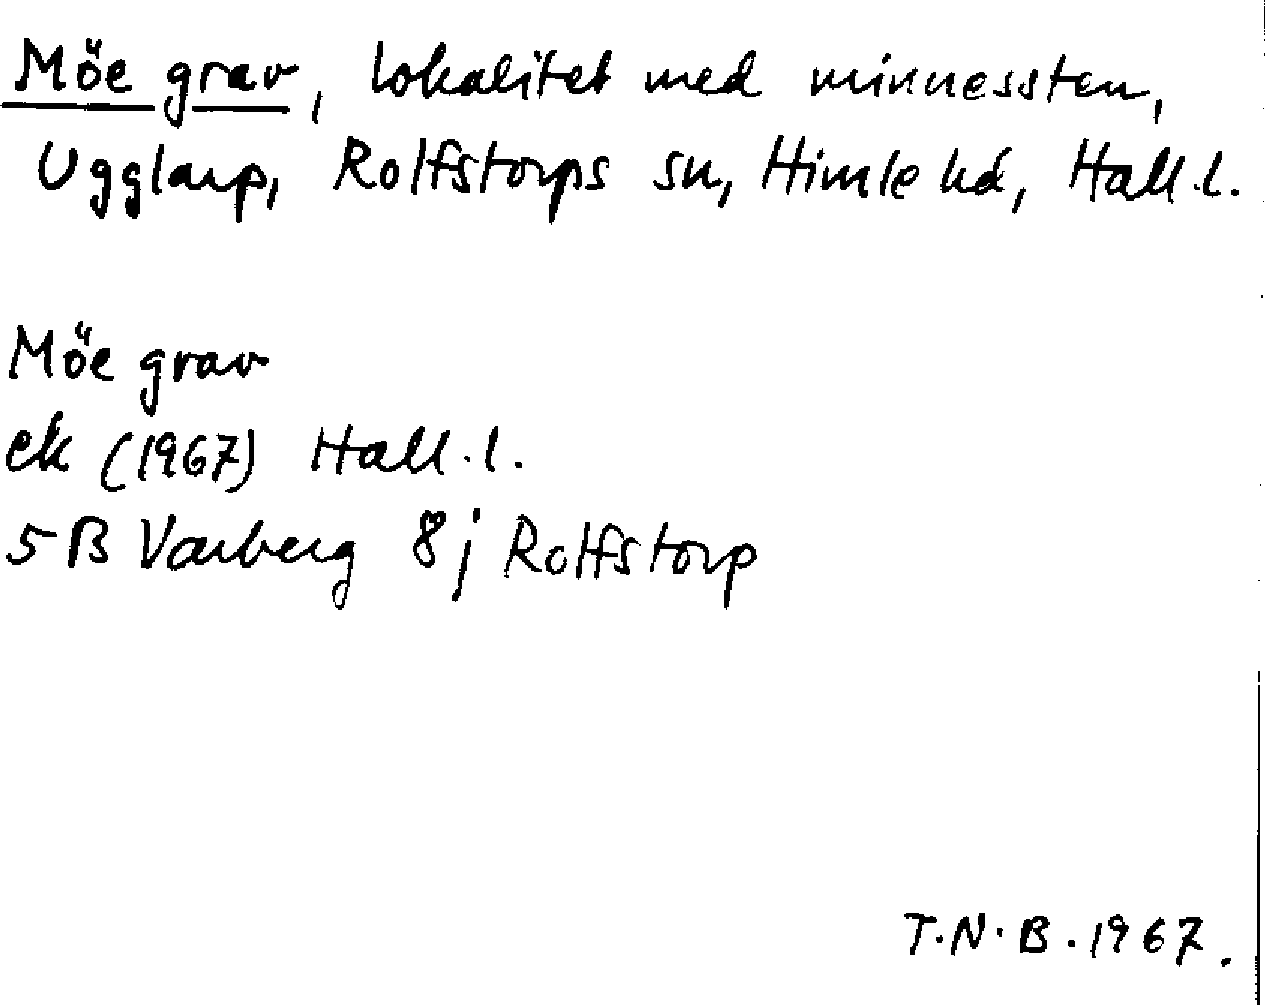 Möe grav, lokalitet med minnessten,
Ugglarp, Rolfstorps sn, Himle hd, Hall. l.
Möe grav
ek (1967) Hall. l.
5B Varberg 8j Rolfstorp
T.N.B. 1967.